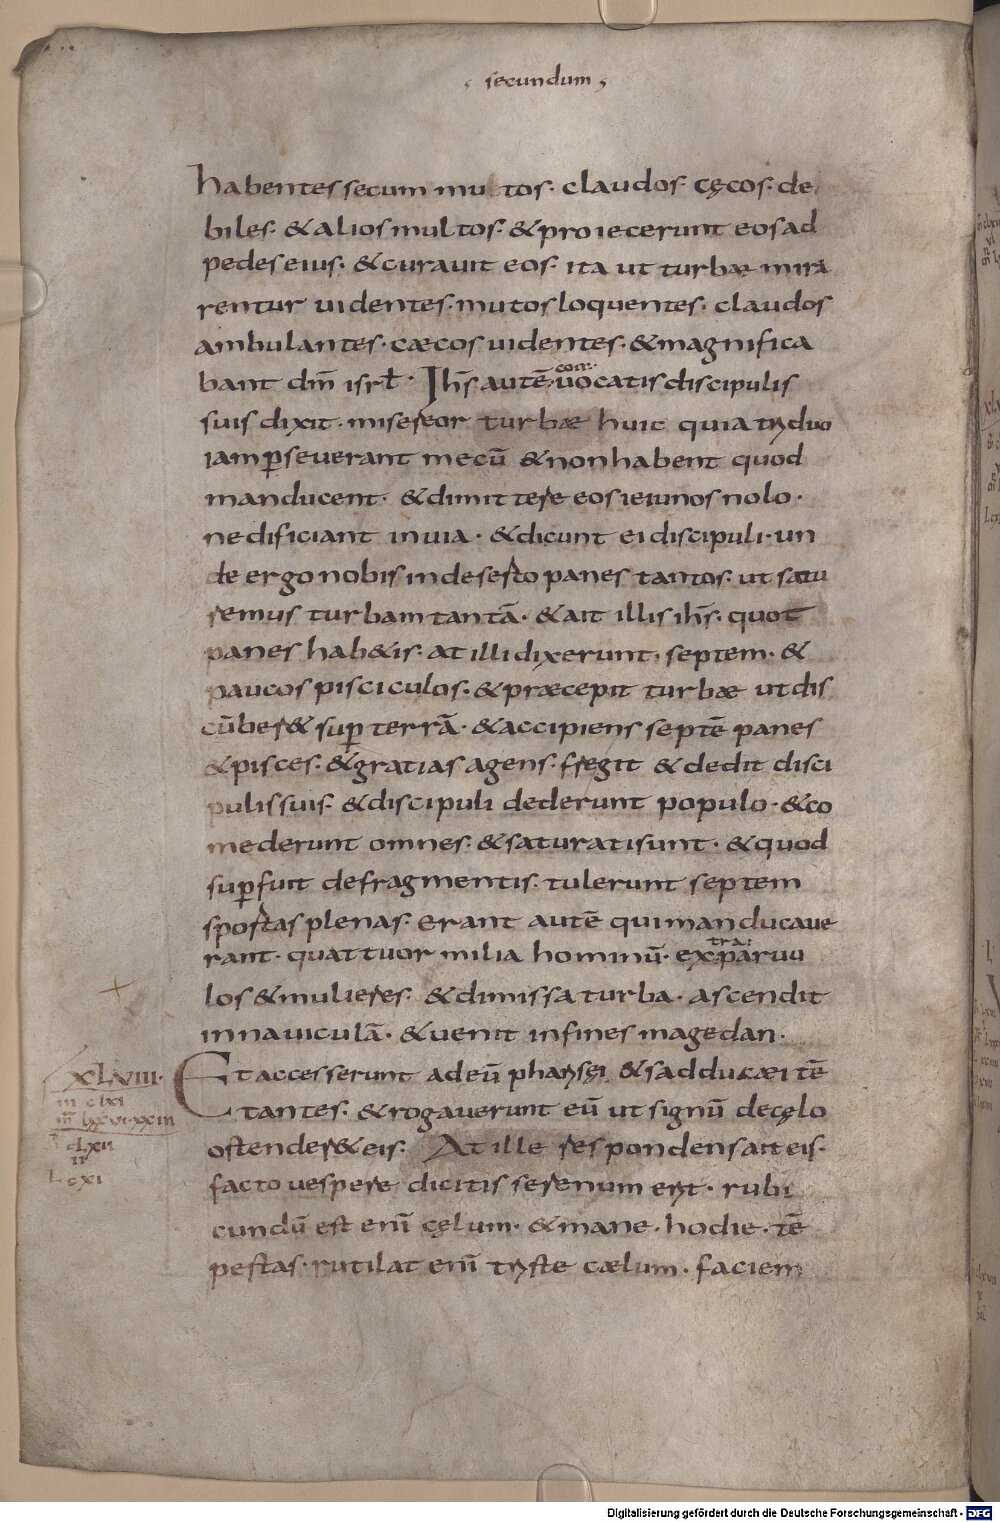 secundum
habentes secum mu tos · claudos · cęcos · de
biles · & alios multos · & proiecerunt eos ad
pedes eius · & curavit eos · ita ut turbæ mira
rentur uidentes · mutos loquentes · claudos
ambulantes · cæcos uidentes · & magnifica
bant dm̄ isrł · Ihs̄ autē con uocatis discipulis
suis dixit · misereor turbæ huic quia triduo
iam ꝑseverant mecū & non habent quod
manducent · & dimittere eos ieiunos nolo ·
ne dificiant in uia · & dicunt ei discipuli · un
de ergo nobis in deserto panes tantos · ut satu
remus turbam tantā · & ait illis ihs̄ · quot
panes hab&is · at illi dixerunt · septem · &
paucos pisciculos · & præcepit turbæ ut dis
cūber& suꝑ terrā · & accipiens septē panes
& pisces · & gratias agens · fregit & dedit disci
pulis suis · & discipuli dederunt populo · & co
mederunt omnes · & saturati sunt · & quod
suꝑfuit de fragmentis · tulerunt septem
sportas plenas · Erant autē qui manducaue
rant · quattuor milia hominū · ex tra: paruu
los & mulieres · & dimissa turba · ascendit
in nauiculā · & uenit in fines magedan ·
XLVIII · Et accesserunt ad eū pharisęi & sadducæi tē
m clxi
m̄ lxxvi · xxiii
tantes · & rogaverunt eū ut signū de cęlo
clxii
ii
ostender& eis · At ille respondens ait eis ·
Lcxi
facto uespere dicitis serenum erit · rubi
cundū est enī cęlum · & mane · hodie · tē
pestas · rutilat enī triste cælum · faciem
Digitalisierung gefördert durch die Deutsche Forschungsgemeinschaft - DFG